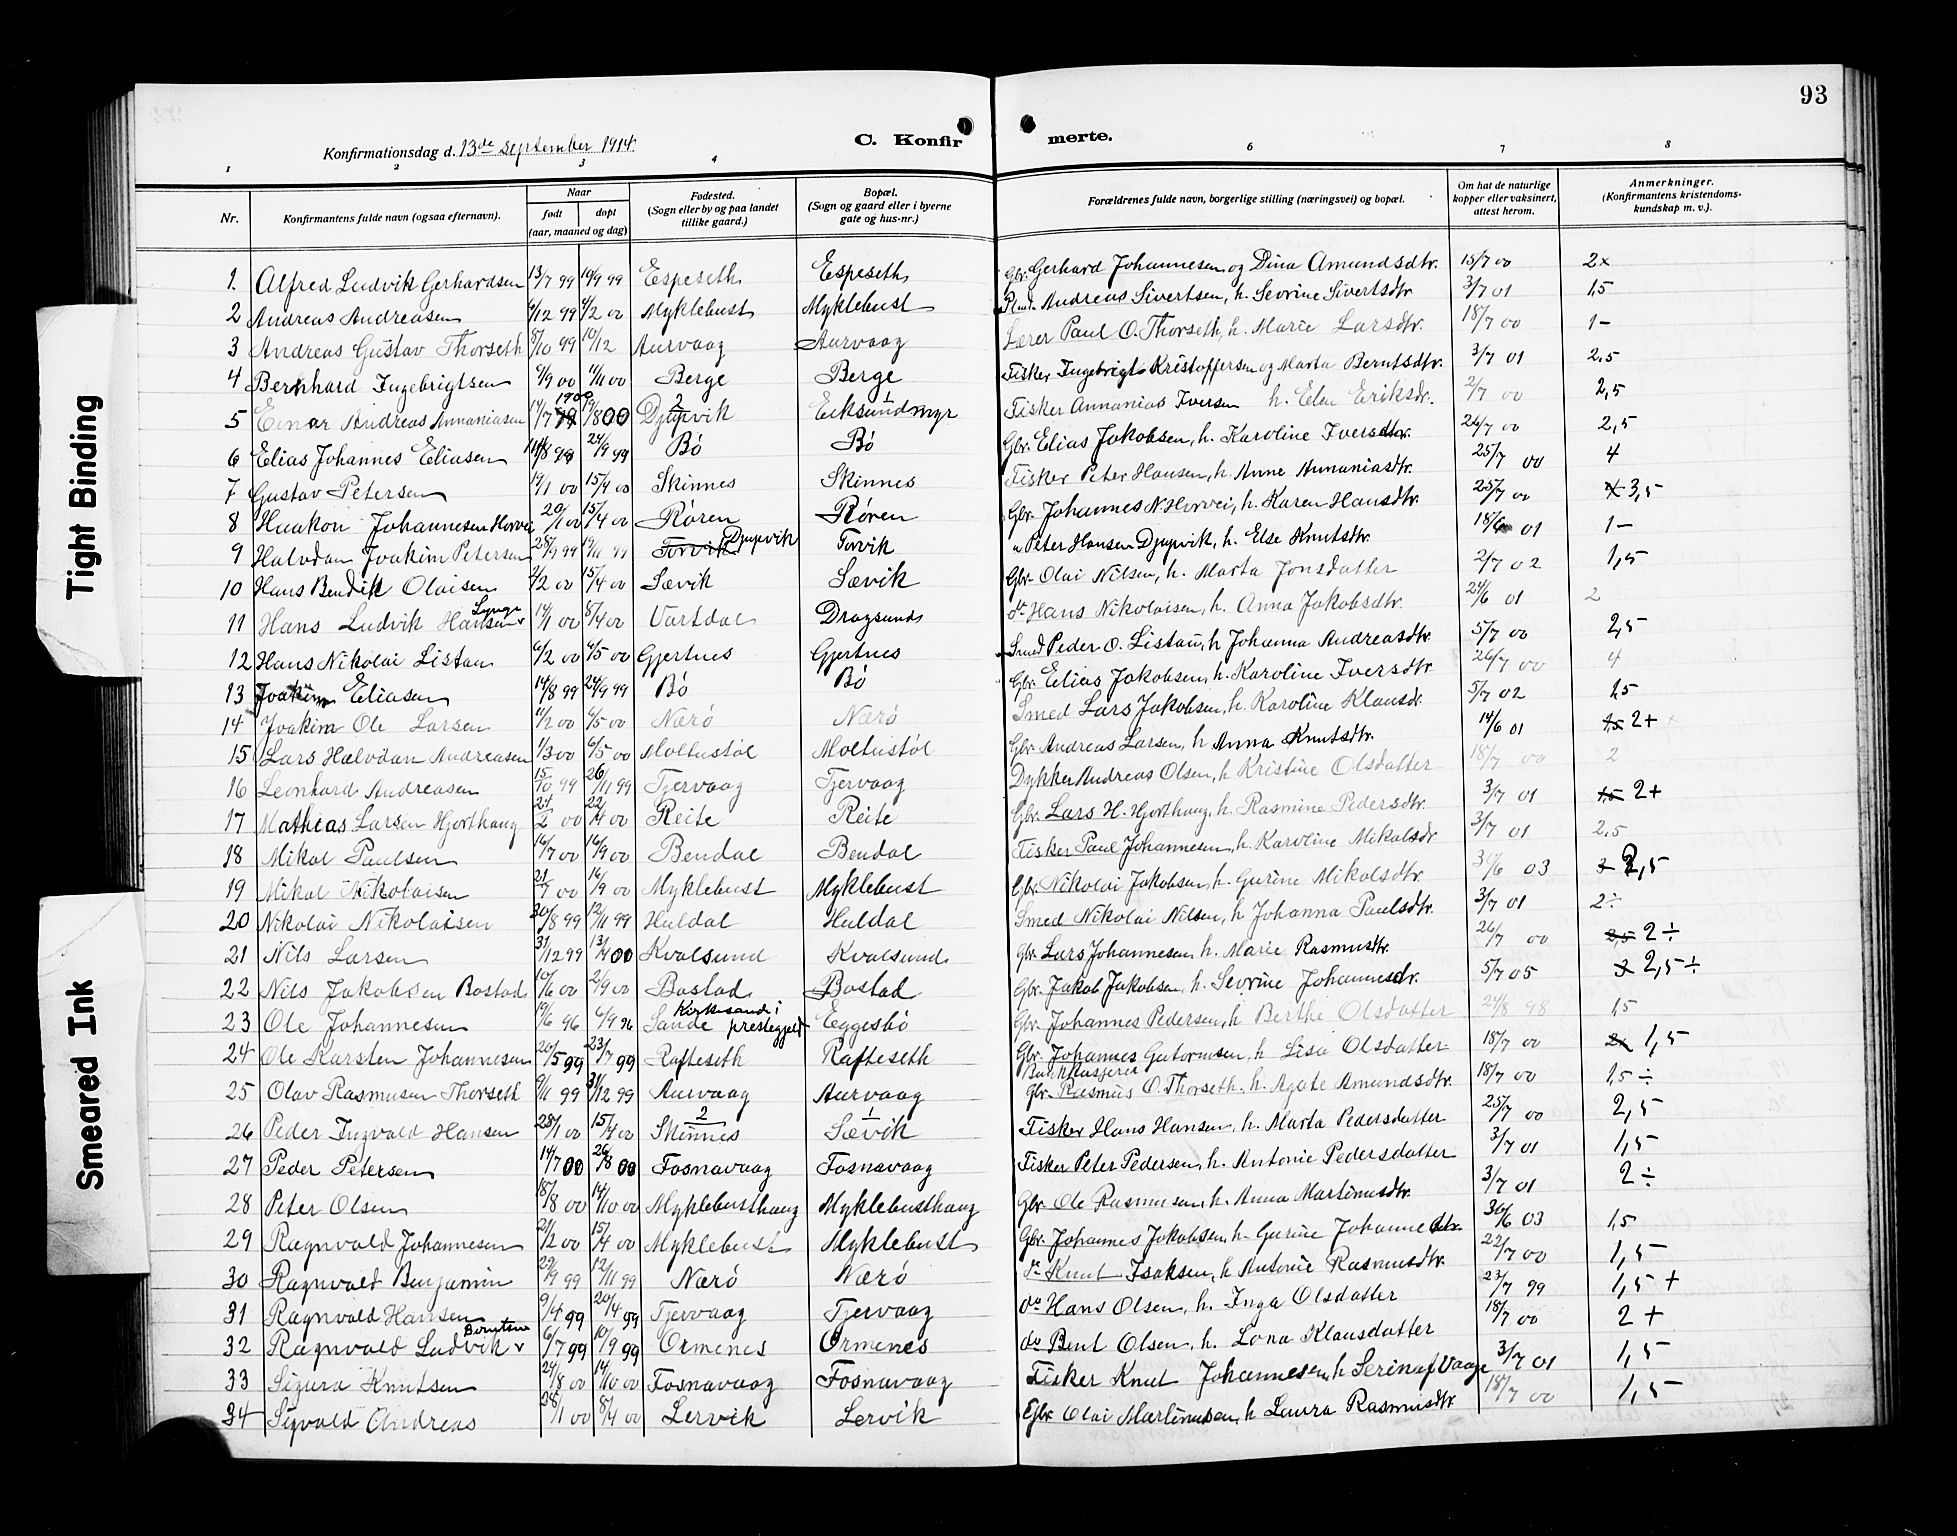 93
Konfirmationsdag d. 13de september 1914.
C. Konfirmerte.
1 2 3 4 6 7 8
Nr. Konfirmantens fulde navn (ogsaa efternavn). Naar født døpt (aar, maaned og dag) Fødested. (Sogn eller by og paa landet tillike gaard.) Bopæl. (Sogn og gaard eller i byerne gate og hus-nr.) Forældrenes fulde navn, borgerlige stilling (næringsvei) og bopæl. Om hat de naturlige kopper eller vaksinert, attest herom. Anmerkninger. (Konfirmantens kristendomskundskap m. v.).
1. Alfred Ludvik Gerhardsen 13/7 99 10/9 99 Espeseth Espeseth Gbr. Gerhard Johannesen og Dina Amundsdtr. 15/7 00 2x
2 Andreas Andreasen 6/12 99 4/2 00 Myklebust Myklebust Andreas Sivertsen, h. Sevrine Sivertsdtr 3/7 01 1,5
3 Andreas Gustav Thorseth 8/10 99 10/12 Aurvaag Aurvaag Lærer Paul O. Thorseth, h. Marie Larsdtr. 18/7 00 1-
4 Bernhard Ingebrigtsen 6/9 00 4/11 00 Berge Berge Fisker Ingebrigt Kristoffersen og Marta Berntsdtr. 3/7 01 2,5
5 Einar Andreas Annaniasen 14/7 1900 19/8 00 Djupvik 2 Eiksundmyr 1 Fisker Annanias Iversen h. Elen Eriksdtr. 2/7 00 2,5
6 Elias Johannes Eliasen 14/8 99 24/9 99 Bø Bø Gbr. Elias Jakobsen, h. Karoline Iversdtr. 26/7 00 2,5
7 Gustav Petersen 19/1 00 15/4 00 Skinnes Skinnes Fisker Peter Hansen, h. Anne Annaniasdtr. 25/7 00 4
8 Haakon Johannesen Horvei 20/1 00 15/4 00 Røren Røren Gbr. Johannes N. Horvei, h. Karen Hansdtr. 25/7 00 3,5
9 Halvdan Joakim Petersen 28/9 99 19/11 99 Torvik Djupvik Torvik " Peter Hansen Djupvik, h. Else Knutsdtr. 18/6 01 1-
10 Hans Bendik Olaisen 2/2 00 15/4 00 Sævik Sævik Gbr. Olai Nilsen, h. Marta Jonsdatter 2/7 02 1,5
11 Hans Ludvik Hansen Lynge 14/1 00 8/4 00 Vartdal Dragsund do Hans Nikolaisen, h. Anna Jakobsdtr. 24/6 01 2
12 Hans Nikolai Listau 6/2 00 6/5 00 Gjertnes Gjertnes Smed Peder O. Listau, h. Johanna Andreasdtr. 5/7 00 2,5
13 Joakim Eliasen 14/8 99 24/9 99 Bø Bø Gbr. Elias Jakobsen, h. Karoline Iversdtr. 26/7 00 4
14 Joakim Ole Larsen 11/2 00 6/5 00 Nærø Nærø Smed Lars Jakobsen, h. Karoline Klausdr. 5/7 02 1,5
15 Lars Halvdan Andreasen 1/3 00 6/5 00 Moltustøl Moltustøl Gbr. Andreas Larsen, h Anna Knutsdtr. 14/6 01 1,5 2+
16 Leonhard Andreasen 15/10 99 26/11 99 Tjervaag Tjervaag Dykker Andreas Olsen, h Kristine Olsdatter 18/7 00 2
17 Mathias Larsen Hjorthaug 24/2 00 22/4 00 Reite Reite Gbr. Lars H. Hjorthaug, h. Rasmine Pedersdtr. 3/7 01 1,5 2+
18 Mikal Paulsen 16/7 00 16/9 00 Bendal Bendal Fisker Paul Johannesen, h. Karoline Mikalsdr 3/7 01 2,5
19 Mikal Nikolaisen 21/7 00 16/9 00 Myklebust Myklebust Gbr. Nikolai Jakobsen, h. Gurine Mikalsdtr 30/6 03 2,5
20 Nikolai Nikolaisen 30/8 99 12/11 99 Huldal Huldal Smed Nikolai Nilsen, h Johanna Paulsdtr. 3/7 01 2÷
21 Nils Larsen 31/12 99 13/4 00 Kvalsund Kvalsund Gbr. Lars Johannesen, h. Marie Rasmusdtr. 26/7 00 2,5 2÷
22 Nils Jakobsen Bostad 10/6 00 2/9 00 Bostad Bostad Gbr. Jakob Jakobsen, h. Sevrine Johannesdr. 5/7 05 2,5÷
23 Ole Johannesen 19/6 96 6/9 96 Sande Kirkesande i prestegjeld Eggesbø Gbr. Johannes Pedersen, h Berthe Olsdatter 24/8 98 1,5
24 Ole Karsten Johannesen 20/5 99 23/7 99 Rafteseth Rafteseth Gbr. Johannes Guttormsen, h Lisa Olsdatter 18/7 00 2x 1,5
25 Olav Rasmusen Thorseth 9/11 99 31/12 99 Aurvaag Aurvaag Gbr. Bankkasserer Rasmus O. Thorseth. h. Agate Amundsdtr. 18/7 00 1,5÷
26 Peder Ingvald Hansen 28/1 00 15/4 00 Skinnes 2 Sævik 1 Fisker Hans Hansen, h. Marta Pedersdatter 25/7 00 2,5
27 Peder Petersen 14/7 00 26/8 00 Fosnavaag Fosnavaag Fisker Peter Pedersen, h. Antonie Pedersdatter 3/7 01 1,5
28 Peter Olsen 18/8 00 14/10 00 Myklebusthaug Myklebusthaug Gbr. Ole Rasmusen, h. Anna Martinusdtr. 3/7 01 2÷
29 Ragnvald Johannesen 21/2 00 15/4 00 Myklebust Myklebust Gbr. Johannes Jakobsen, h. Gurine Johannesdtr. 30/6 03 1,5
30 Ragnvald Benjamin 29/9 99 12/11 99 Nærø Nærø do Knut Isaksen, h Antonie Rasmusdtr. 22/7 00 1,5-
31 Ragnvald Hansen 9/4 99 20/4 99 Tjervaag Tjervaag do Hans Olsen, h. Inga Olsdatter 23/7 99 1,5+
32 Ragnvald Ludvik Berntsen 6/7 99 10/9 99 Ormenes Ormenes do Bent Olsen, h. Lona Klausdatter 18/7 00 2+
33 Sigurd Knutsen 24/8 00 14/10 00 Fosnavaag Fosnavaag Fisker Knut Johannesen, h Serina f. Vaage 3/7 01 1,5
34 Sigvald Andreas 28/1 00 8/4 00 Lervik Lervik Gbr. Olai Martinusen, h Laura Rasmusdtr 18/7 00 1,5
Tight Binding
Smeared Ink